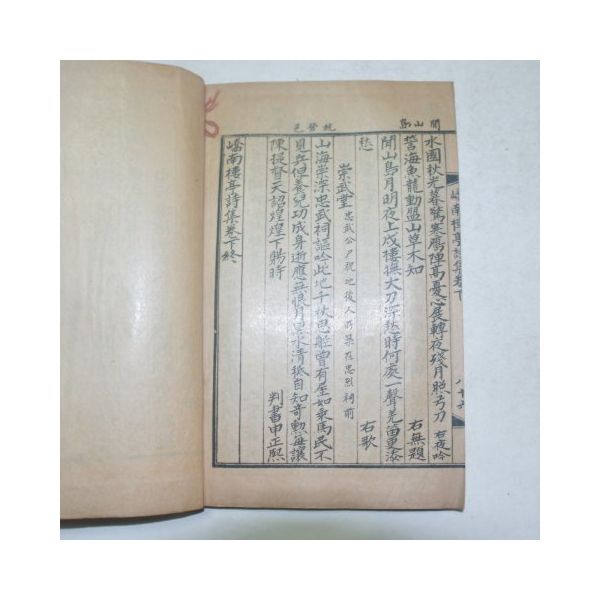 閒山島
統營邑
水國秋光暮驚寒鴈陣高憂心展轉夜殘月照弓刀 右夜吟
誓海魚龍動盟山草木知 右無題
閒山島月明夜上戍樓撫大刀深愁時何處一聲羌笛更添
愁 右歌
崇武堂 忠武公尸祝地後人所築在忠烈祠前
山海崇深忠武祠謳吟此地千秋思船曾有至如乘馬民不
見兵但養兒功成身逝應無恨月黑水清秪自知奇勳每讓
陳提督天詔煌煌下賜時 判書申正熙
嶠南樓亭詩集卷下終
嶠南樓亭詩集卷下
八十六